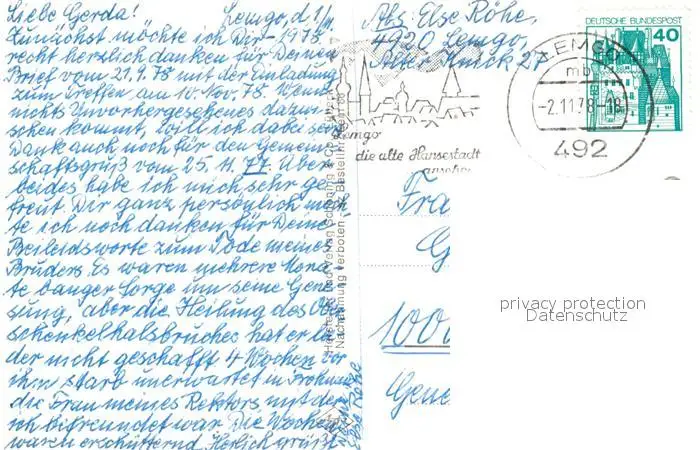 Liebe Gerda! Lemgo, d. 1/11
Zunächst möchte ich Dir 1978
recht herzlich danken für Deinen
Brief vom 21.9.78 mit der Einladung
zum Treffen am 10. Nov. 78. Wenn
nichts Unvorhergesehenes dazwi-
schen kommt, will ich dabei sein
Dank auch noch für den Gemein-
schaftsgruß vom 25.11.77. Über
beides habe ich mich sehr ge-
freut. Dir ganz persönlich möch-
te ich noch danken für Deine
Beileidsworte zum Tode meines
Bruders. Es waren mehrere Mona-
te banger Sorge um seine Gene-
sung, aber die Heilung des Ober
schenkelhalsbruches hat er lei
der nicht geschafft 4 Wochen vor
ihm starb unerwartet in
die Frau meines Rektors, mit der
ich befreundet war Die Wochen
waren erschütternd Herzlich grüßt
Else Röhe
Verlag Schöning & Co
Nachahmung verboten
Abs. Else Röhe,
4920 Lemgo,
Alter Knick 27
Lemgo
die alte Hansestadt
LEMGO
mb
-2.11.78-18
492
DEUTSCHE BUNDESPOST
40
Fra
G
1000
Gene
privacy protection
Datenschutz